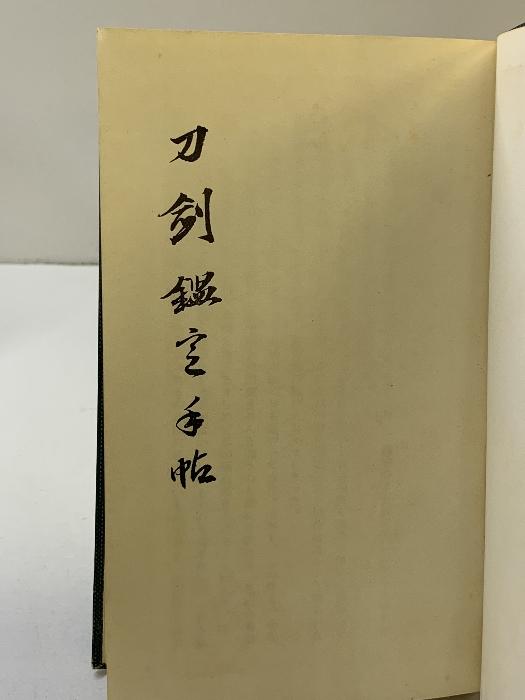 刀剣鑑定手帖